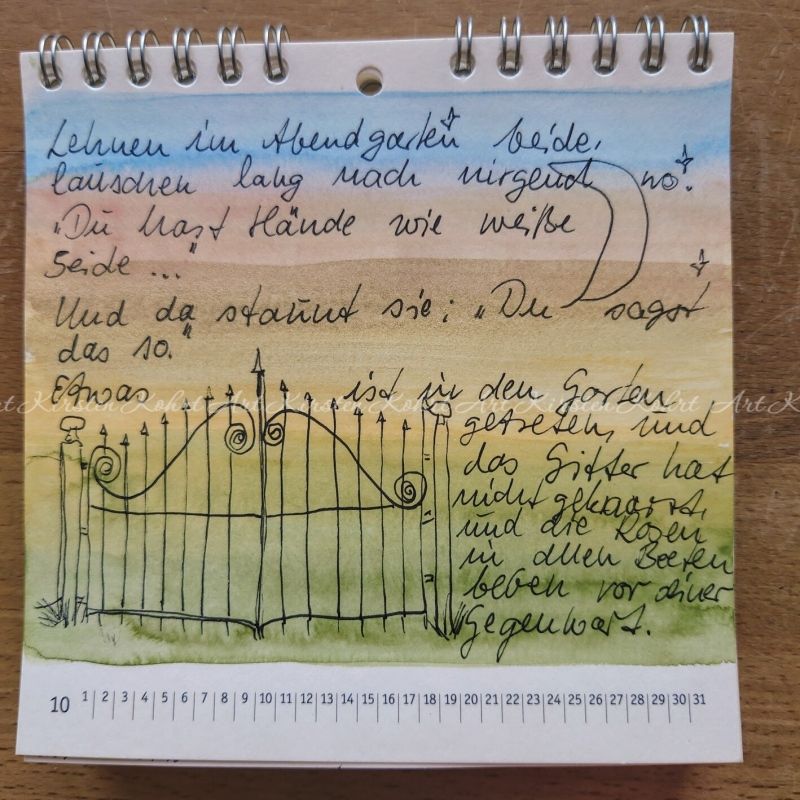 Lehnen im Abendgarten beide,
lauschen lang nach nirgend wo.
„Du hast Hände wie weiße
Seide ..."
Und da staunt sie: „Du sagst
das so."
Etwas ist in den Garten
getreten, und
das Gitter hat
nicht geknarrt,
und die Rosen
in allen Beeten
beben vor deiner
Gegenwart.
Art Kirsten Kohrt Art Kirsten Kohrt Art Kirsten Kohrt Art K
10 1 2 3 4 5 6 7 8 9 10 11 12 13 14 15 16 17 18 19 20 21 22 23 24 25 26 27 28 29 30 31